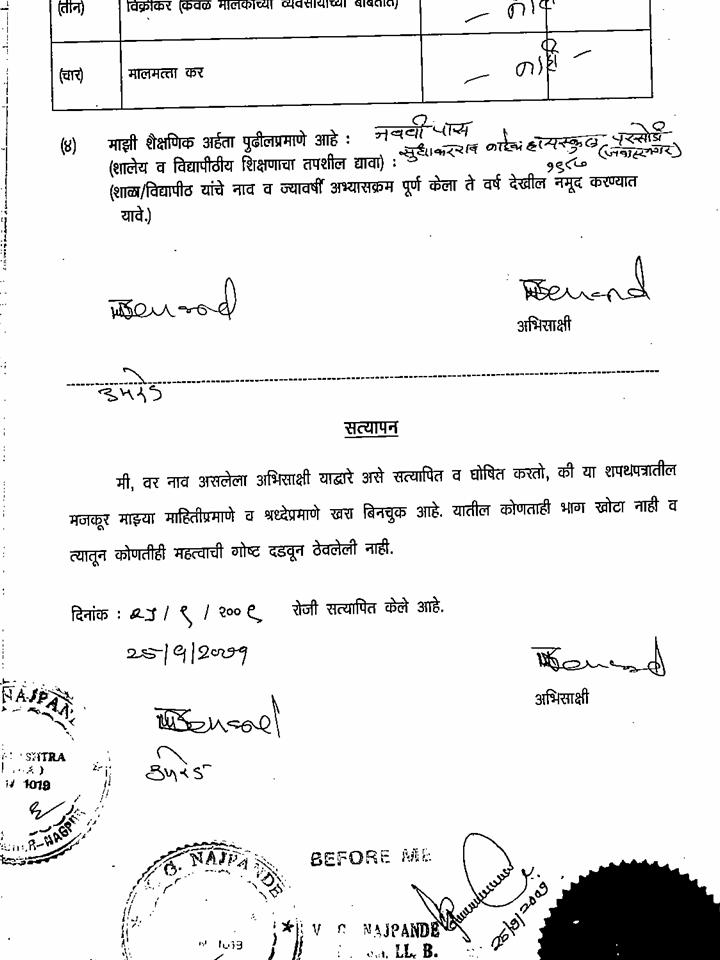 (तीन) विक्रीकर (केवळ मालकीच्या व्यवसायाच्या बाबतीत) — नाही
(चार) मालमत्ता कर — नाही —
(४) माझी शैक्षणिक अर्हता पुढीलप्रमाणे आहे : नववी पास
(शालेय व विद्यापीठीय शिक्षणाचा तपशील द्यावा) : सुधाकरराव हायस्कुल, परसोडी (जवाहरनगर)
(शाळा/विद्यापीठ यांचे नाव व ज्यावर्षी अभ्यासक्रम पूर्ण केला ते वर्ष देखील नमूद करण्यात
यावे.)
अभिसाक्षी
उमरेड
सत्यापन
मी, वर नाव असलेला अभिसाक्षी याद्वारे असे सत्यापित व घोषित करतो, की या शपथपत्रातील
मजकूर माझ्या माहितीप्रमाणे व श्रध्देप्रमाणे खरा बिनचुक आहे. यातील कोणताही भाग खोटा नाही व
त्यातून कोणतीही महत्वाची गोष्ट दडवून ठेवलेली नाही.
दिनांक : २५ / ९ / २००९ रोजी सत्यापित केले आहे.
25/9/2009
अभिसाक्षी
उमरेड
NAJPANDE
1019
NAGPUR
G. NAJPANDE
1019
BEFORE ME
V. G. NAJPANDE
LL. B.
25/9/2009